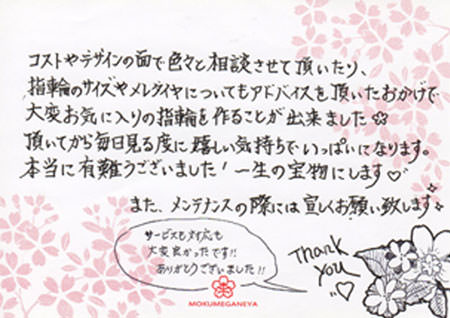 コストやデザインの面で色々と相談させて頂いたり、
指輪のサイズやメレダイヤについてもアドバイスを頂いたおかげで
大変お気に入りの指輪を作ることが出来ました✿
頂いてから毎日見る度に嬉しい気持ちでいっぱいになります。
本当に有難うございました!一生の宝物にします♡
また、メンテナンスの際には宜しくお願い致します
サービスも対応も
大変良かったです!!
ありがとうございました!!
Thank
you
♡
MOKUMEGANEYA